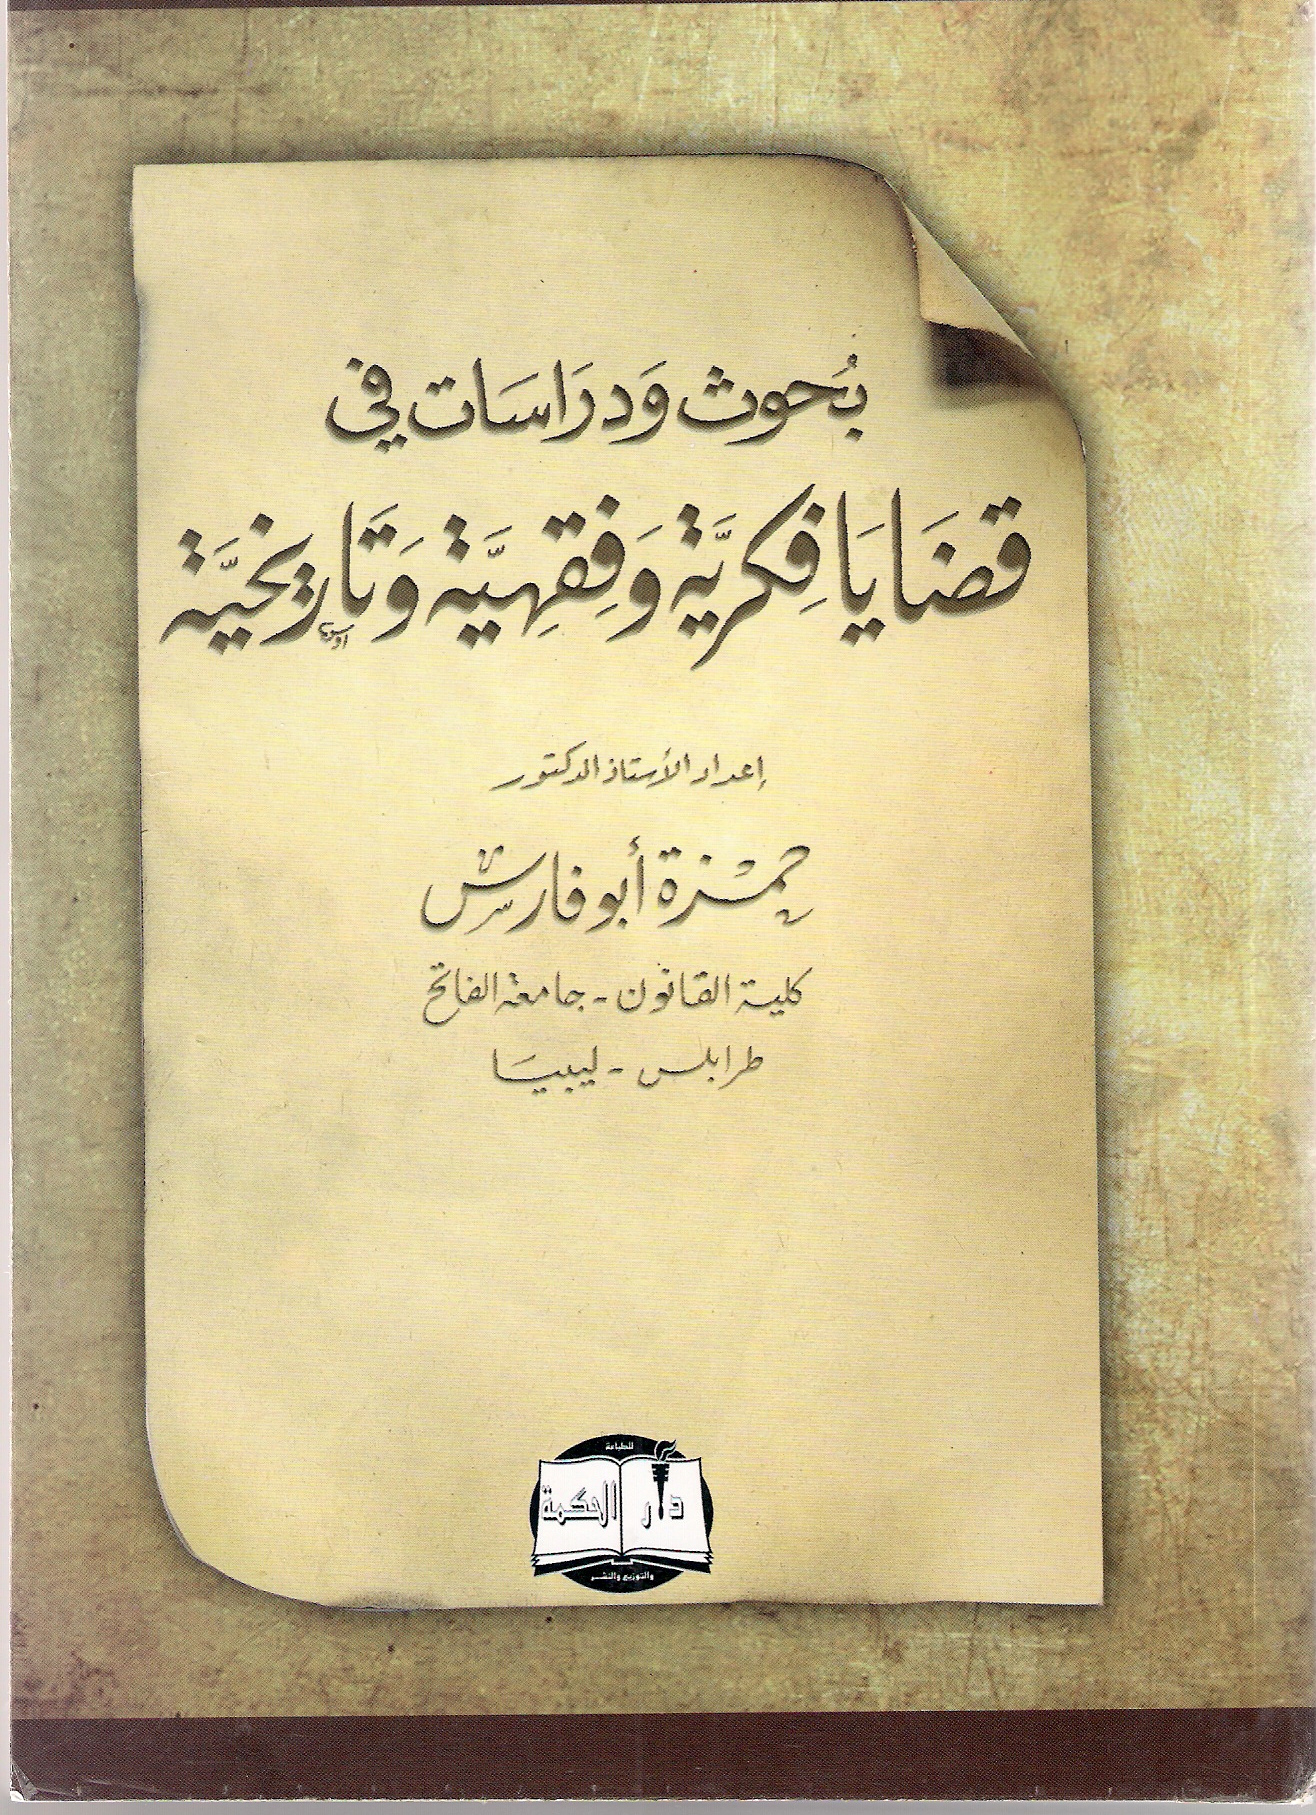 بُحوث وَدِرَاسَات في
قضَايَا فِكريَّة وَفِقهِيَّة وَتَاريخيَّة
إعداد الأستاذ الدكتور
حمْزة أبو فارس
كلية القانون - جامعة الفاتح
طرابلس - ليبيَا
للطباعة
دار الحكمة
والتوزيع والنشر